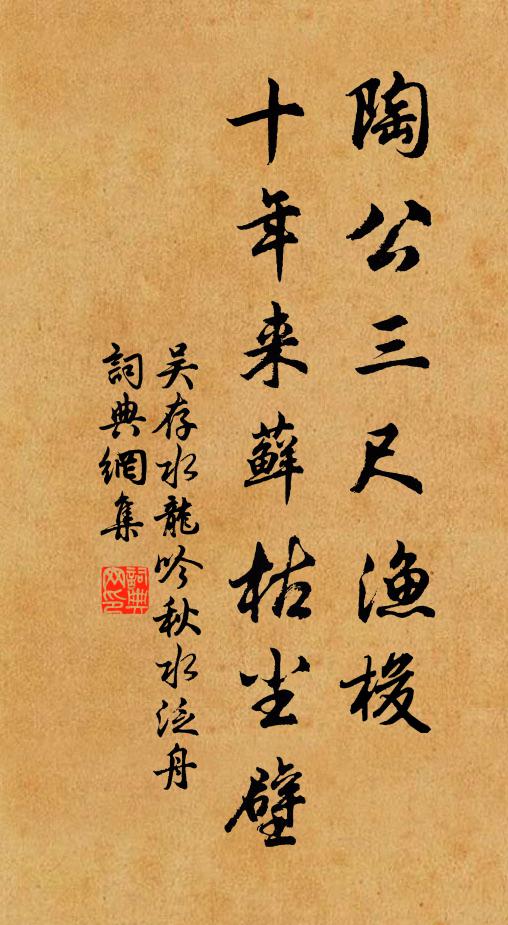 陶公三尺漁梭
十年来蘚枯尘壁
吴存水龍吟秋水泛舟
詞典網集
詞典网印